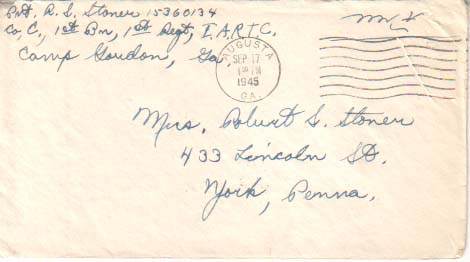 Pvt. R. S. Stoner 15360134
Co, C, 1st Bn, 1st Regt, I.A.R.T.C.
Camp Gordon, Ga.
AUGUSTA
SEP 17
1945
GA.
Mrs. Robert S. Stoner
433 Lincoln St.
York, Penna.